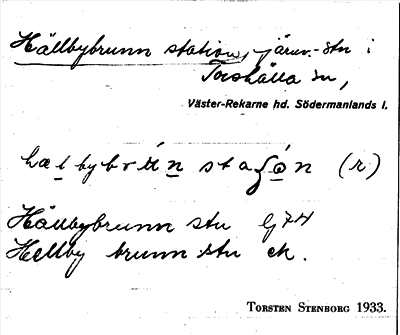 Hällbybrunn station, järnv.-stn i
Torshälla sn,
Väster-Rekarne hd. Södermanlands l.
hælbybrun staʃon (r)
Hällbybrunn stn Gj74
Hellby brunn stn ek.
TORSTEN STENBORG 1933.